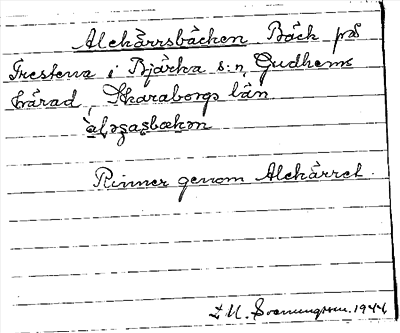 Alekärrsbäcken Bäck på
Trestena i Bjärka s:n, Gudhems
härad, Skaraborgs län
Rinner genom Alekärret.
1944